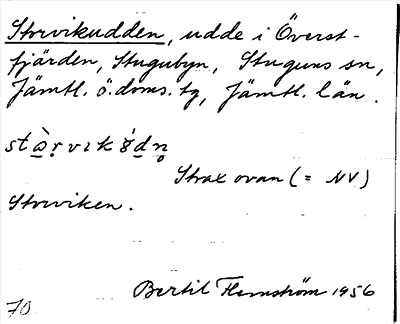 Storvikudden, udde i Överst-
fjärden, Stugubyn, Stuguns sn,
Jämtl. ö. doms. tg, Jämtl. län.
Strax ovan (= NV)
Storviken.
Bertil Flemström 1956
70